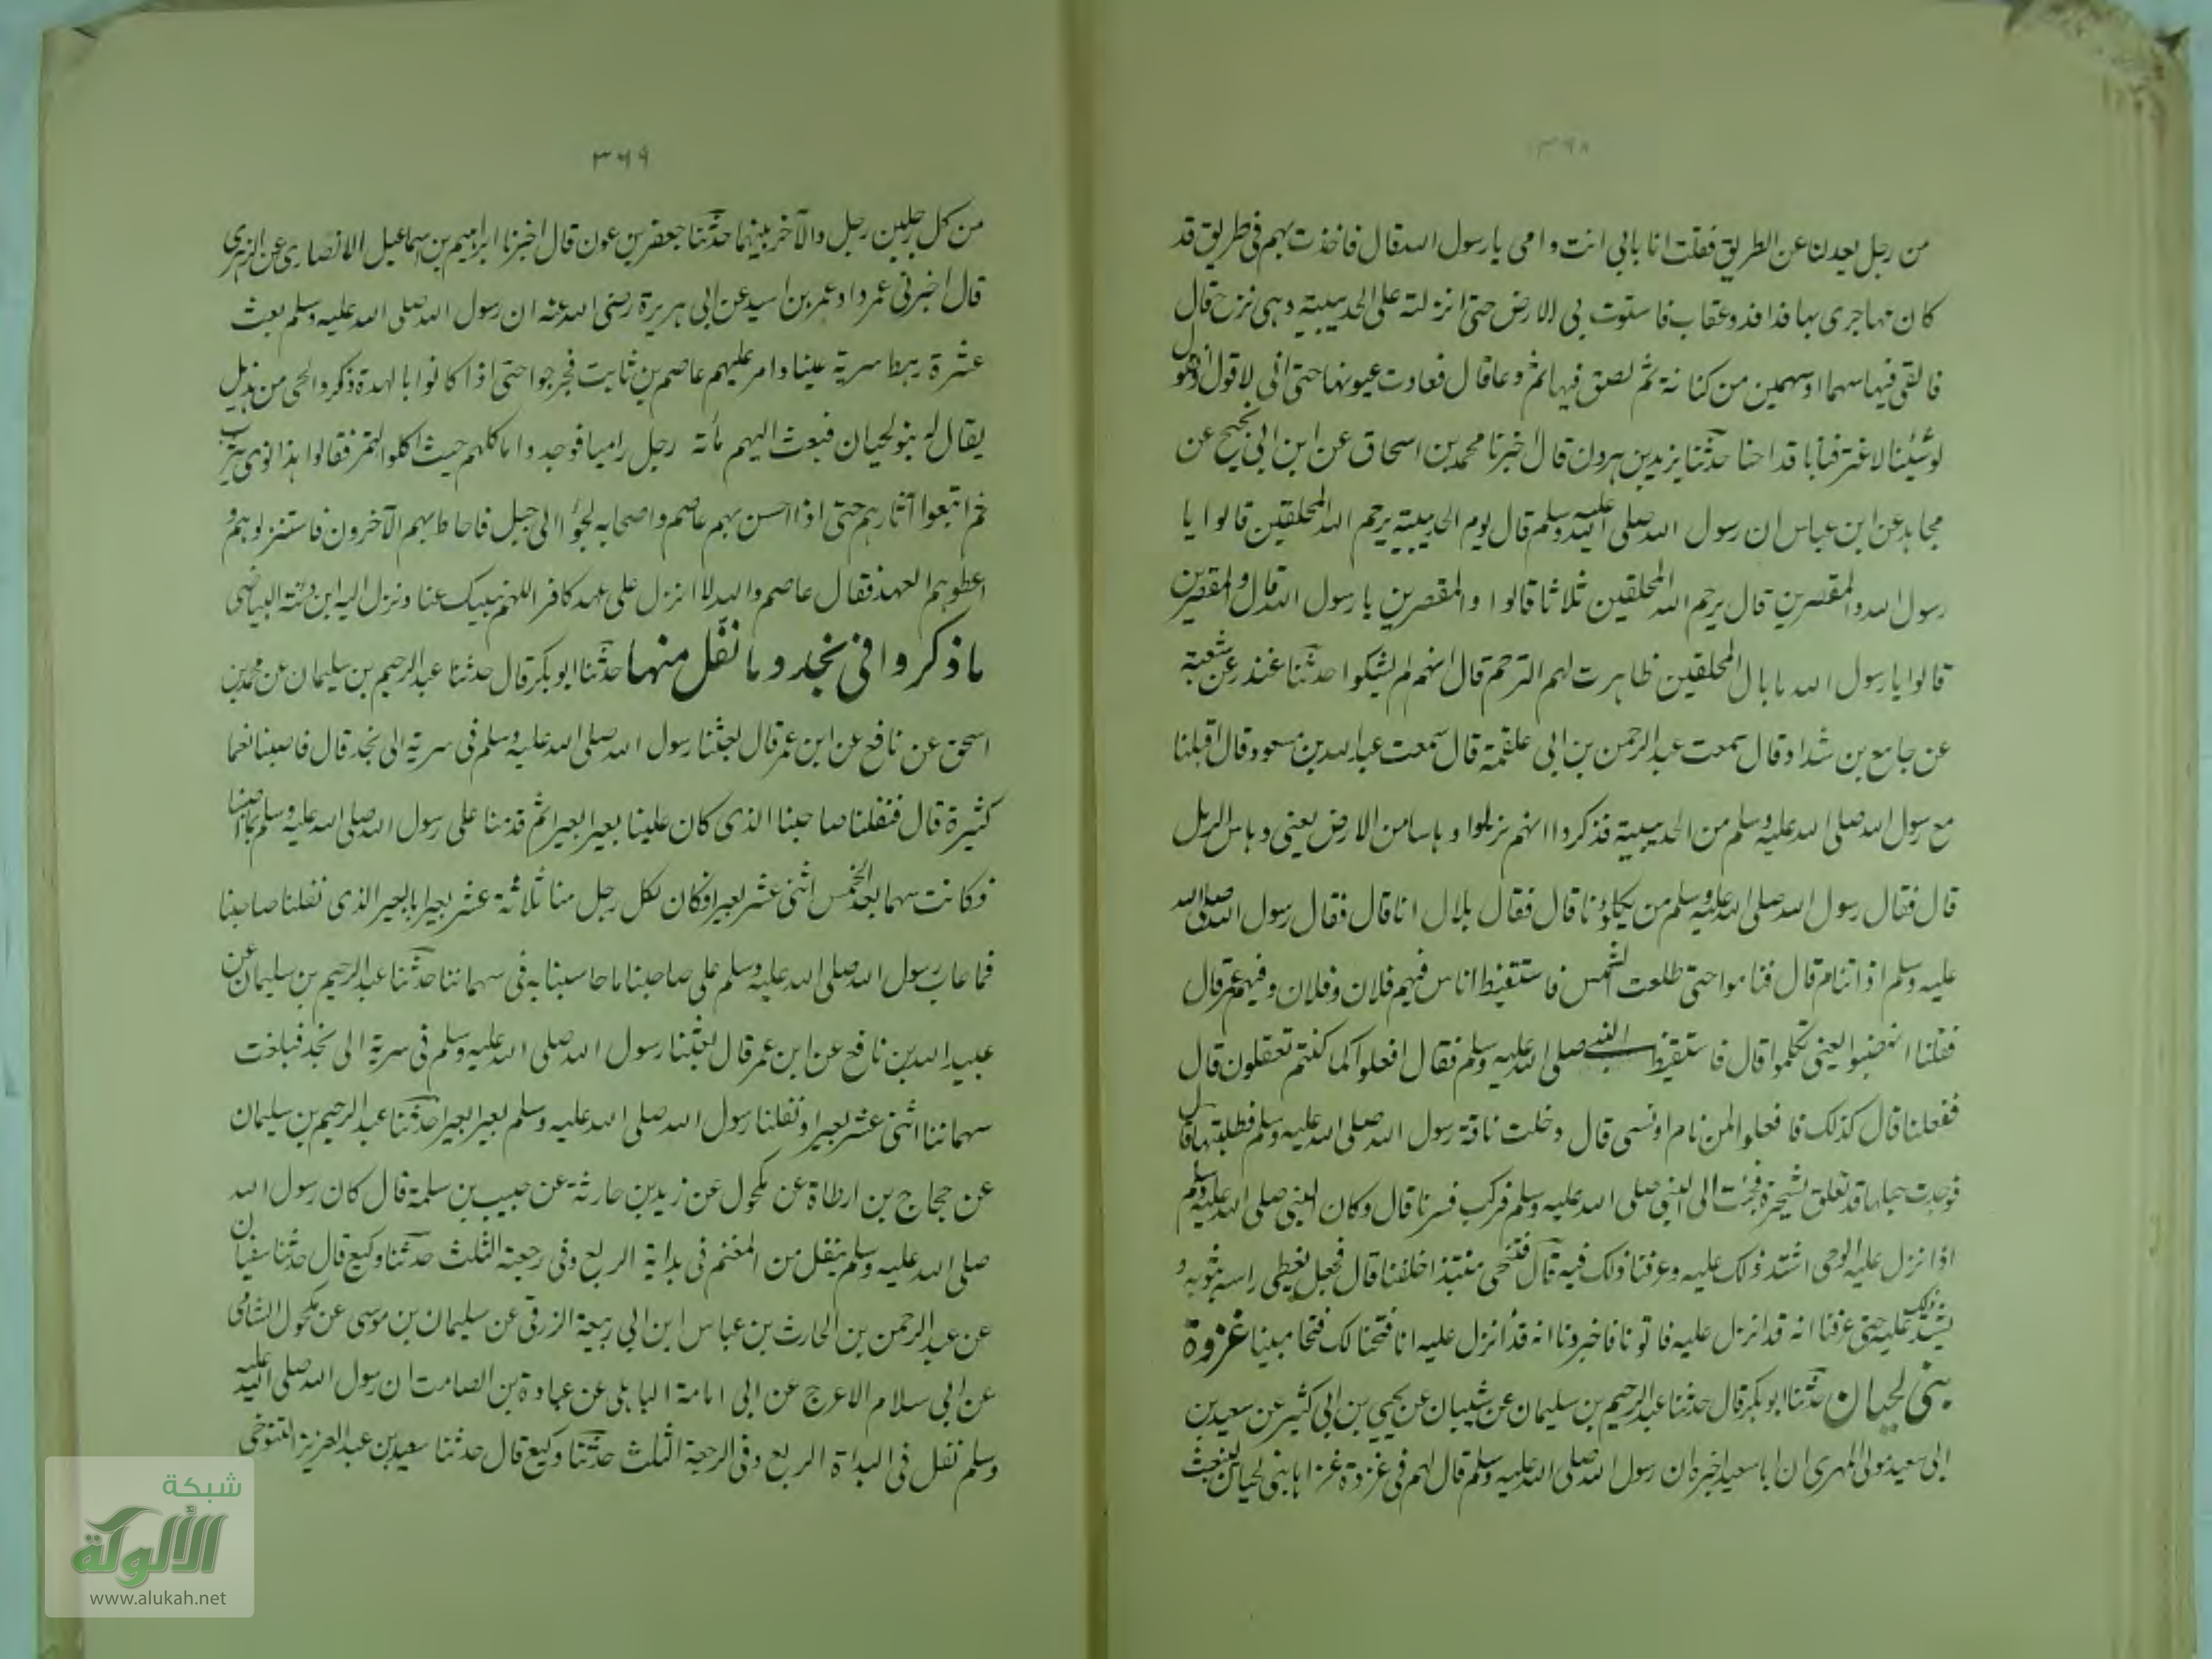 ٣٦٨
من رجل يعدلنا عن الطريق فقلت انا بابى انت وامى يا رسول الله قال فاخذت بهم فى طريق قد
كان مهاجرى بها فدافد وعقاب فاستوت بى الارض حتى انزلته على الحديبية وهى نزح قال
فالقى فيها سهما او سهمين من كنانة ثم بصق فيها ثم دعا قال فعادت عيونها حتى انى لاقول
لو شئنا لاغترفنا باقداحنا حدثنا يزيد بن هرون قال اخبرنا محمد بن اسحاق عن ابن ابى نجيح عن
مجاهد عن ابن عباس ان رسول الله صلى الله عليه وسلم قال يوم الحديبية يرحم الله المحلقين قالوا يا
رسول الله والمقصرين قال يرحم الله المحلقين ثلاثا قالوا والمقصرين يا رسول الله قال والمقصرين
قالوا يا رسول الله ما بال المحلقين ظاهرت لهم الترحم قال انهم لم يشكوا حدثنا غندر عن شعبة
عن جامع بن شداد قال سمعت عبد الرحمن بن ابى علقمة قال سمعت عبد الله بن مسعود قال اقبلنا
مع رسول الله صلى الله عليه وسلم من الحديبية فذكروا انهم نزلوا دهاسا من الارض يعنى دهاس الرمل
قال فقال رسول الله صلى الله عليه وسلم من يكلؤنا قال فقال بلال انا قال فقال رسول الله صلى الله
عليه وسلم اذا تنام قال فناموا حتى طلعت الشمس فاستقيظ اناس فيهم فلان وفلان وفيهم عمر قال
فقلنا اهضبوا يعنى تكلموا قال فاستقيظ النبى صلى الله عليه وسلم فقال افعلوا كما كنتم تفعلون قال
ففعلنا قال كذلك فافعلوا لمن نام او نسى قال وضلت ناقة رسول الله صلى الله عليه وسلم فطلبتها قال
فوجدت حبلها قد تعلق بشجرة فجئت الى النبى صلى الله عليه وسلم فركب فسرنا قال وكان النبى صلى الله عليه وسلم
اذا نزل عليه الوحى اشتد ذلك عليه وعرفنا ذلك فيه قال فتنحى منتبذا خلفنا قال فجعل يغطى راسه بثوبه و
يشتد ذلك عليه حتى عرفنا انه قد انزل عليه فاتونا فاخبرونا انه قد أنزل عليه انا فتحنا لك فتحا مبينا غزوة
بنى لحيان حدثنا ابو بكر قال حدثنا عبد الرحيم بن سليمان عن شيبان عن يحيى بن ابى كثير عن سعيد بن
ابى سعيد مولى المهرى ان ابا سعيد اخبره ان رسول الله صلى الله عليه وسلم قال لهم فى غزوة غزاها بنى لحيان لينبعث
٣٦٩
من كل رجلين رجل والآخر بينهما حدثنا جعفر بن عون قال اخبرنا ابراهيم بن اسماعيل الانصارى عن الزهرى
قال اخبرنى عمر داد عمر بن اسيد عن ابى هريرة رضى الله عنه ان رسول الله صلى الله عليه وسلم بعث
عشرة رهط سرية عينا وامر عليهم عاصم بن ثابت فخرجوا حتى اذا كانوا بالهدة ذكروا لحى من هذيل
يقال له بنو لحيان فبعث اليهم مأته رجل راميا فوجدوا ماكلهم حيث اكلوا التمر فقالوا هذا نوى يثرب
ثم اتبعوا آثارهم حتى اذا احسن بهم عاصم واصحابه لجؤا الى جبل فاحاط بهم الآخرون فاستنزلوهم و
اعطوهم العهد فقال عاصم والله لا انزل على عهد كافر اللهم نبيك عنا ونزل اليه ابن دثنة البياضى
ما ذكروا فى نجد وما نقل منها حدثنا ابو بكر قال حدثنا عبد الرحيم بن سليمان عن محمد بن
اسحق عن نافع عن ابن عمر قال بعثنا رسول الله صلى الله عليه وسلم فى سرية الى نجد قال فاصبنا نعما
كثيرة قال فنفلنا صاحبنا الذى كان علينا بعيرا بعيرا ثم قدمنا على رسول الله صلى الله عليه وسلم بما اصبنا
فكانت سهما بعد الخمس اثنى عشر بعيرا فكان لكل رجل منا ثلاثة عشر بعيرا بالبعير الذى نفلنا صاحبنا
فما عاب رسول الله صلى الله عليه وسلم على صاحبنا ما حاسبنا به فى سهماننا حدثنا عبد الرحيم بن سليمان عن
عبيد الله بن نافع عن ابن عمر قال بعثنا رسول الله صلى الله عليه وسلم فى سرية الى نجد فبلغت
سهماننا اثنى عشر بعيرا ونفلنا رسول الله صلى الله عليه وسلم بعيرا بعيرا حدثنا عبد الرحيم بن سليمان
عن حجاج بن ارطاة عن مكحول عن زيد بن حارثة عن حبيب بن سلمة قال كان رسول الله
صلى الله عليه وسلم ينفل من المغنم فى بداية الربع وفى رجعة الثلث حدثنا وكيع قال حدثنا سفيان
عن عبد الرحمن بن الحارث بن عباس ابن ابى ربيعة الزرقى عن سليمان بن موسى عن مكحول الشامى
عن ابى سلام الاعرج عن ابى امامة الباهلى عن عبادة بن الصامت ان رسول الله صلى الله عليه
وسلم نفل فى البداة الربع وفى الرجعة الثلث حدثنا وكيع قال حدثنا سعيد بن عبد العزيز التنوخى
شبكة
الألوكة
www.alukah.net